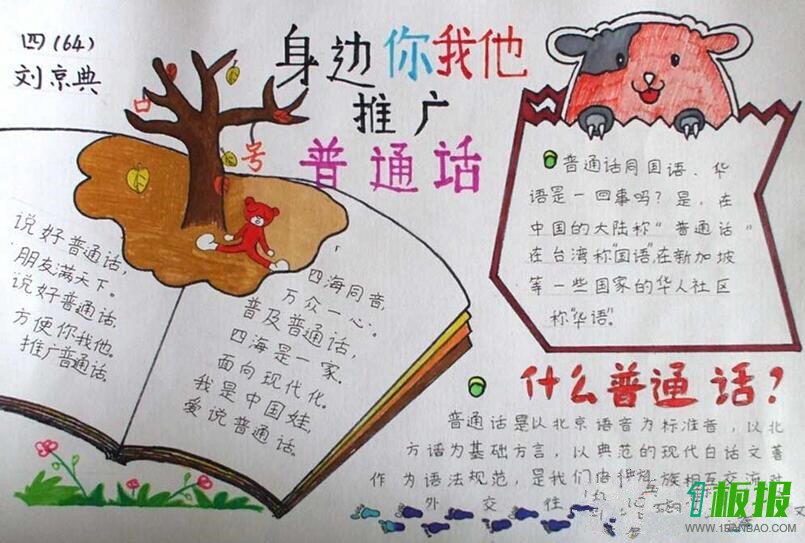 四(64)
刘京典
身边你我他
推广
普通话
口
号
说好普通话,
朋友满天下。
说好普通话,
方便你我他。
推广普通话。
四海同音,
万众一心。
普及普通话,
四海是一家。
面向现代化。
我是中国娃,
爱说普通话。
普通话同国语、华
语是一回事吗?是,在
中国的大陆称"普通话"
在台湾称"国语",在新加坡
等一些国家的华人社区
称"华语"。
什么普通话?
普通话是以北京语音为标准音,以北
方话为基础方言,以典范的现代白话文著
作为语法规范,是我们 族相互交流
外交
板报
WWW.1BANBAO.COM